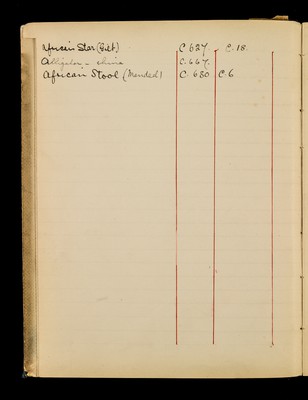 African Star (Gilt) C 627 C. 18.
Alligator - china C. 667.
African Stool (Mended) C. 680 C. 6